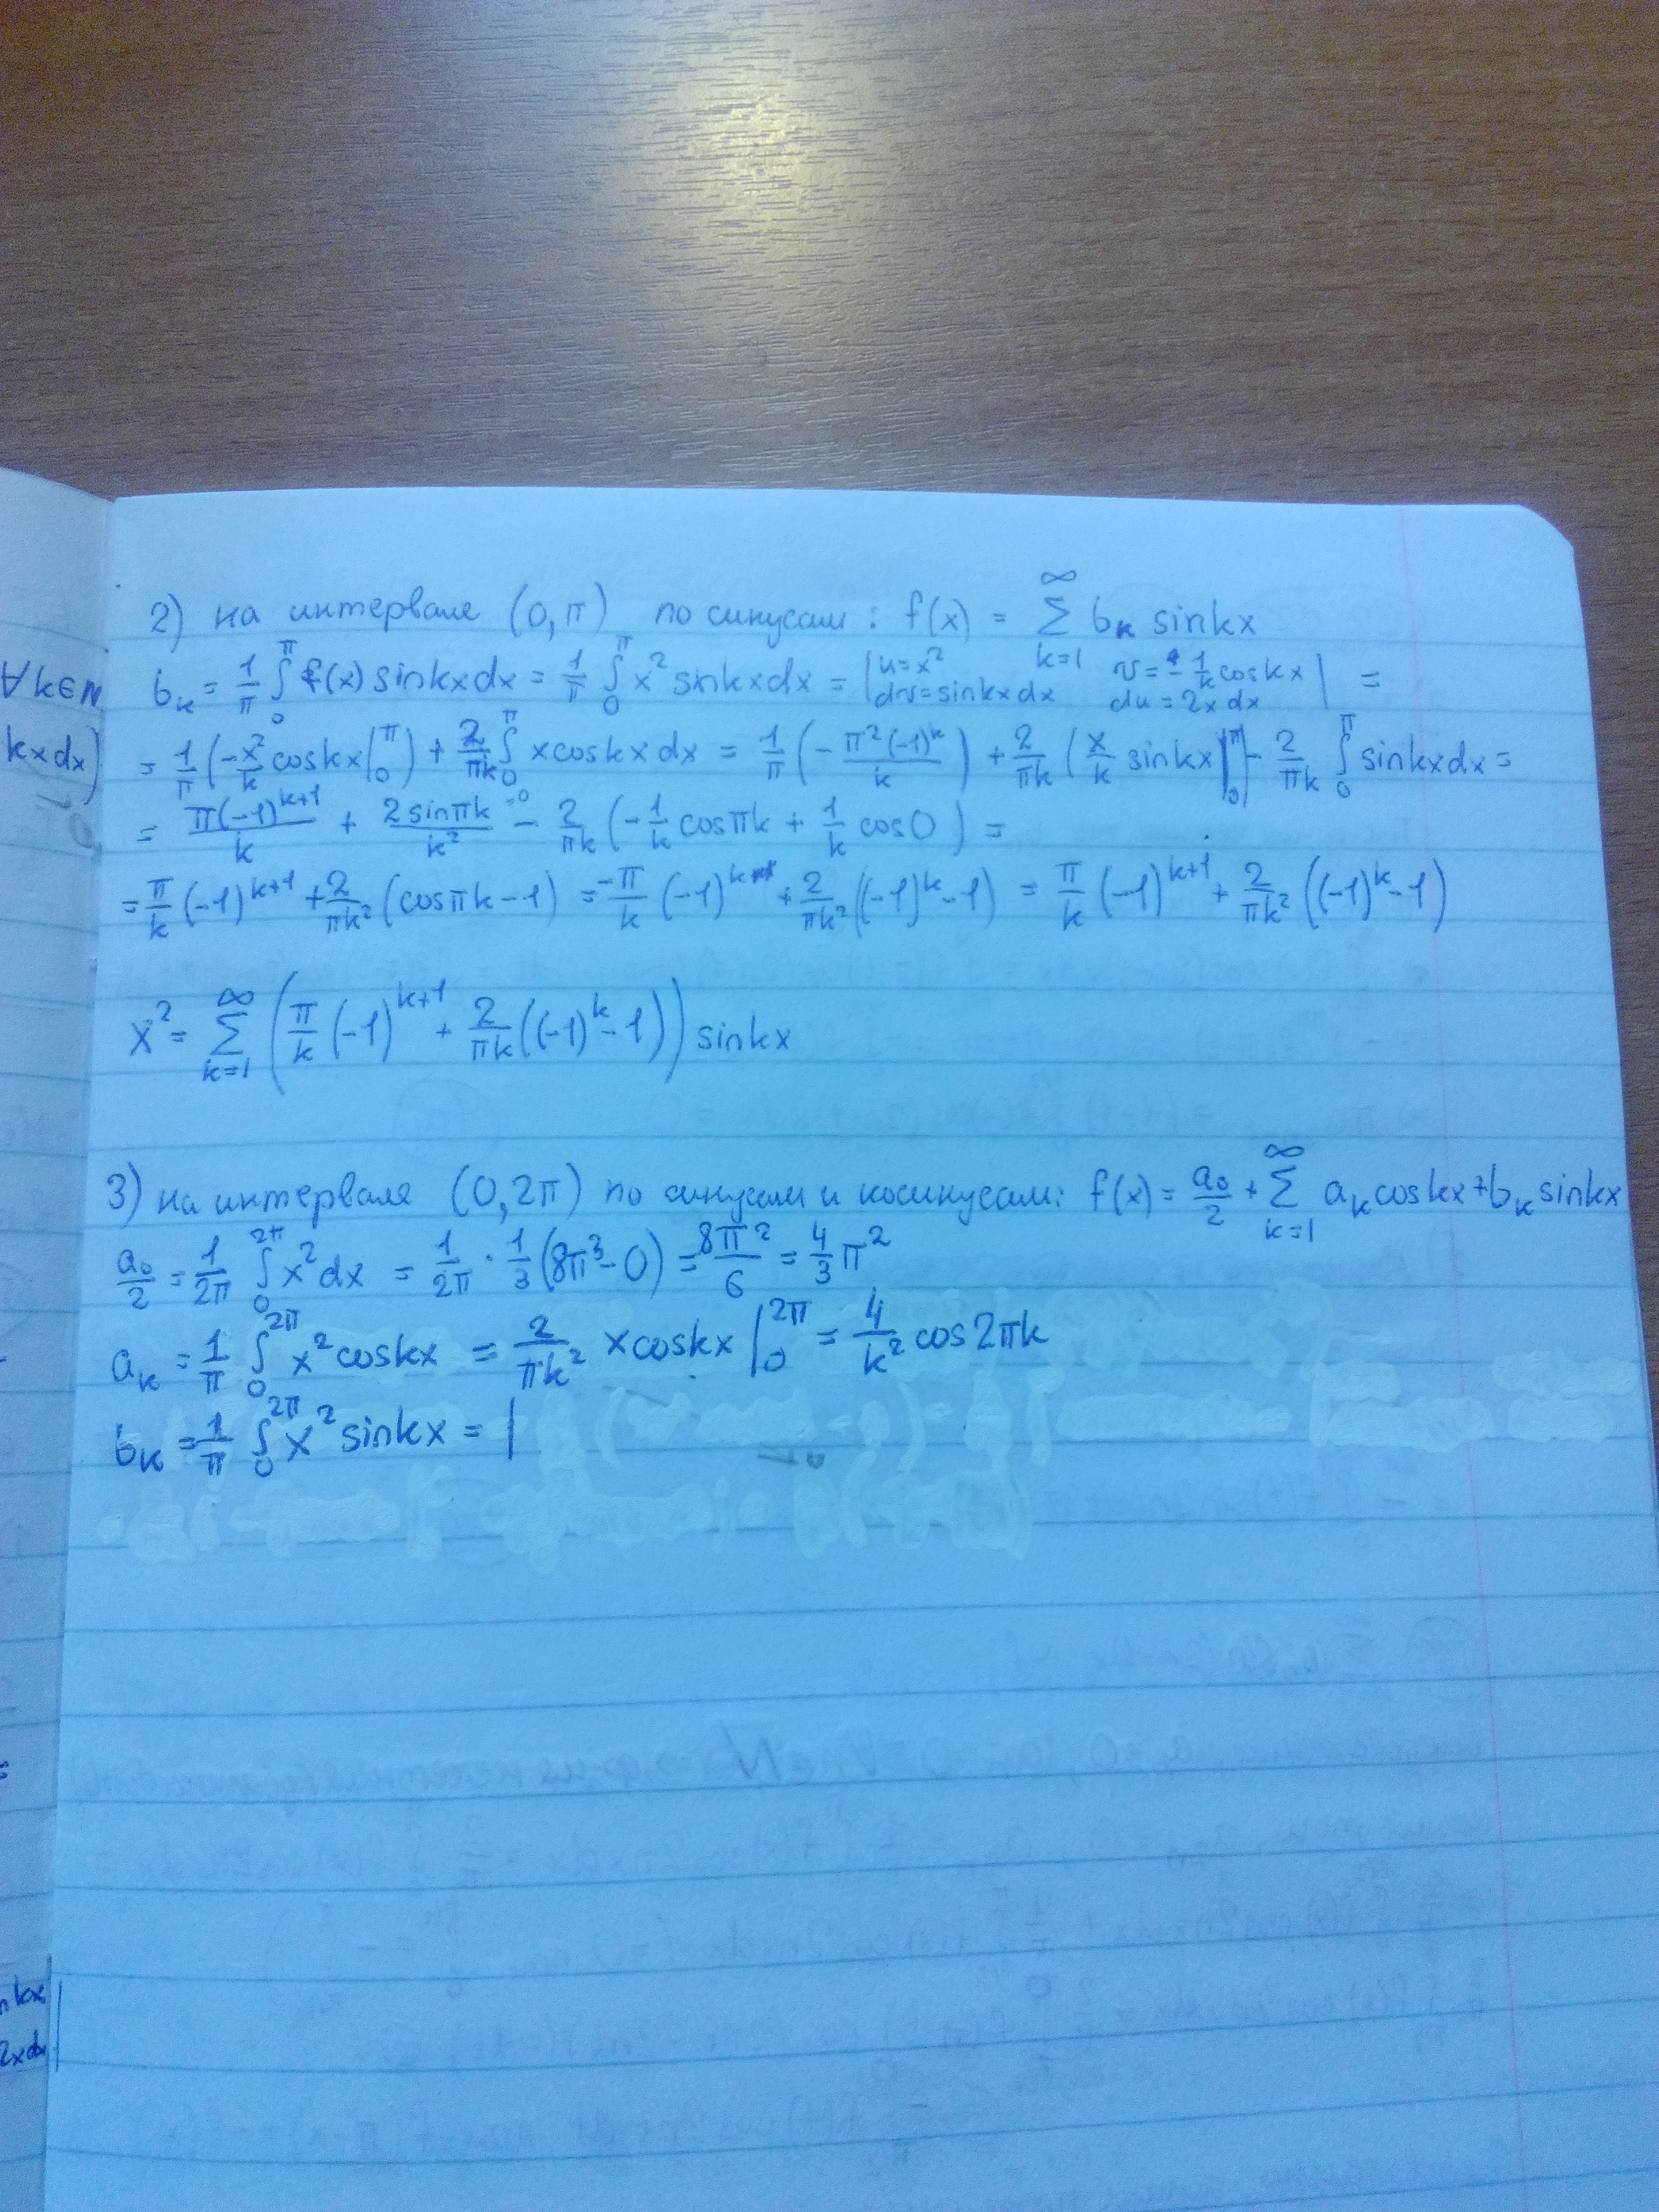 2) на интервале (0,π) по синусам: f(x) = ∑_{k=1}^{∞} b_k sinkx
∀k∈N
b_k = 1/π ∫_0^π f(x) sinkxdx = 1/π ∫_0^π x² sinkxdx = | u=x² v=-1/k coskx dv=sinkxdx du=2xdx | =
kxdx)
= 1/π (-x²/k coskx|_0^π) + 2/πk ∫_0^π xcoskxdx = 1/π (-π²(-1)^k/k) + 2/πk (x/k sinkx|_0^π - 2/πk ∫_0^π sinkxdx =
= π(-1)^{k+1}/k + 2sinπk/k² =0 - 2/πk (-1/k cosπk + 1/k cos0) =
= π/k (-1)^{k+1} + 2/πk² (cosπk-1) = -π/k (-1)^k + 2/πk² ((-1)^k-1) = π/k (-1)^{k+1} + 2/πk² ((-1)^k-1)
x² = ∑_{k=1}^{∞} (π/k (-1)^{k+1} + 2/πk ((-1)^k-1)) sinkx
3) на интервале (0,2π) по синусам и косинусам: f(x) = a₀/2 + ∑_{k=1}^{∞} a_k coskx+b_k sinkx
a₀/2 = 1/2π ∫_0^{2π} x²dx = 1/2π · 1/3 (8π³-0) = 8π²/6 = 4/3 π²
a_k = 1/π ∫_0^{2π} x²coskx = 2/πk² xcoskx |_0^{2π} = 4/k² cos2πk
b_k = 1/π ∫_0^{2π} x² sinkx = |
kx
2xdx